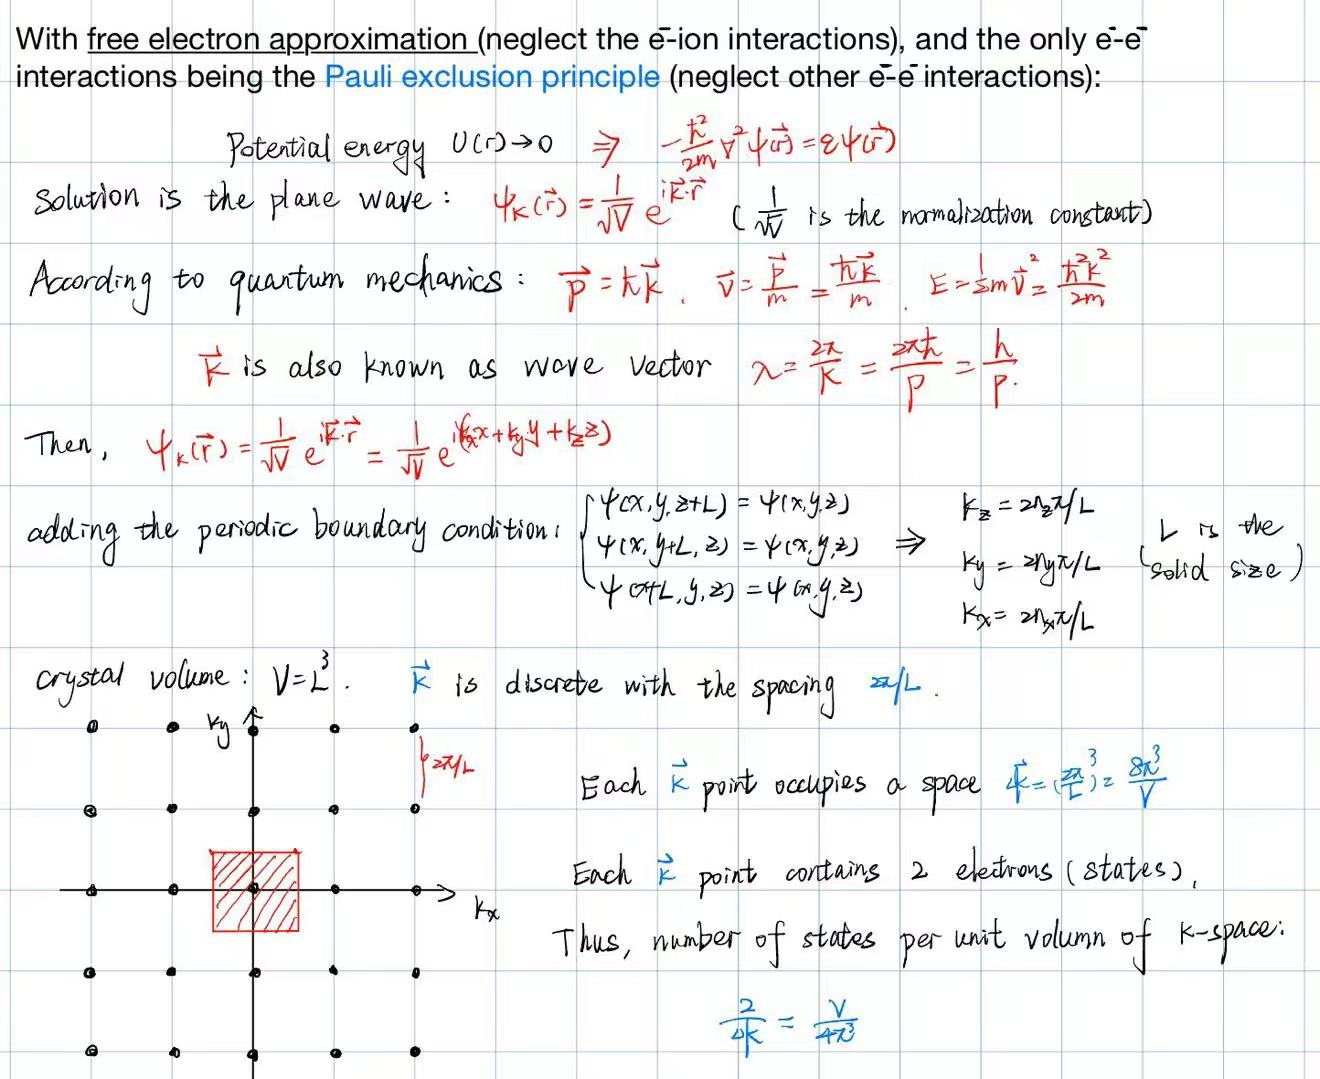 With free electron approximation (neglect the e⁻-ion interactions), and the only e⁻-e⁻
interactions being the Pauli exclusion principle (neglect other e⁻-e⁻ interactions):
Potential energy U(r)→0 ⇒ -ħ²/2m ∇²ψ(r⃗)=εψ(r⃗)
Solution is the plane wave: ψ_K(r⃗) = 1/√V e^{ik⃗·r⃗} (1/√V is the normalization constant)
According to quantum mechanics: p⃗ = ħk⃗. v⃗ = p⃗/m = ħk⃗/m. E = ½mv⃗² = ħ²k⃗²/2m
k⃗ is also known as wave vector λ = 2π/K = 2πħ/P = h/P.
Then, ψ_K(r⃗) = 1/√V e^{ik⃗·r⃗} = 1/√V e^{i(k_x x+k_y y+k_z z)}
adding the periodic boundary condition: { ψ(x,y,z+L) = ψ(x,y,z)
ψ(x,y+L,z) = ψ(x,y,z)
ψ(x+L,y,z) = ψ(x,y,z)
⇒ k_z = 2n_zπ/L
k_y = 2n_yπ/L
k_x = 2n_xπ/L
(L is the
solid size)
crystal volume: V=L³. k⃗ is discrete with the spacing 2π/L.
ky
2π/L
kx
Each k⃗ point occupies a space Δk=(2π/L)³ = 8π³/V
Each k⃗ point contains 2 electrons (states),
Thus, number of states per unit volumn of k-space:
2/Δk = V/4π³